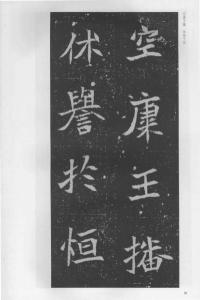 空康王播
休譽於恒